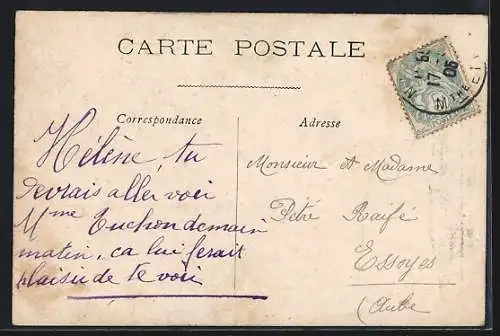 CARTE POSTALE
Correspondance
Adresse
Hélène, tu
devrais aller voir
Mme Tuchon demain
matin, ça lui ferait
plaisir de te voir
Monsieur et Madame
Petré Raifé
Essoyes
(Aube
17
06